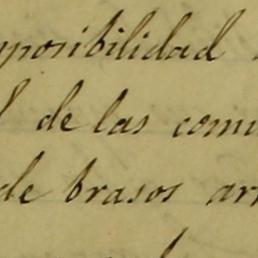 mposibilidad
l de las comu
de brasos ar